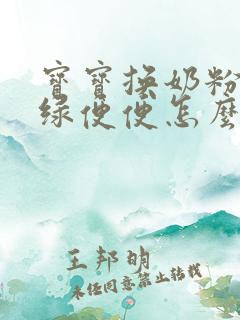 寶寶換奶粉
綠便便怎麼
王邦明
未经同意禁止转载